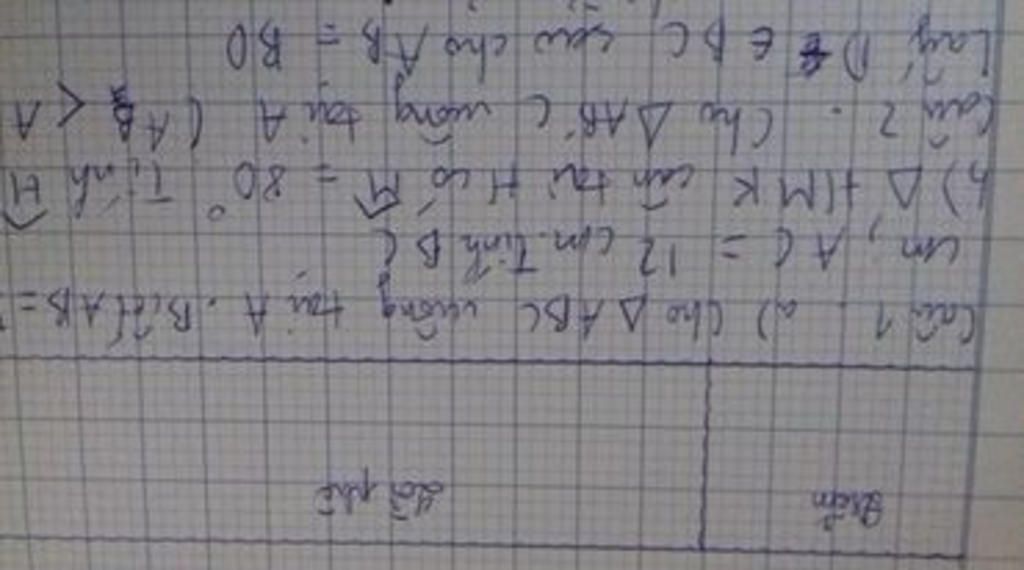 Điểm
Lời phê
Câu 1. a) Cho ΔABC vuông tại A. Biết AB =
cm, AC = 12 cm. Tính BC
b) ΔHMK cân tại H có M̂ = 80° Tính Ĥ
Câu 2. Cho ΔABC vuông tại A (AB < A
Lấy D ∈ BC sao cho AB = BD